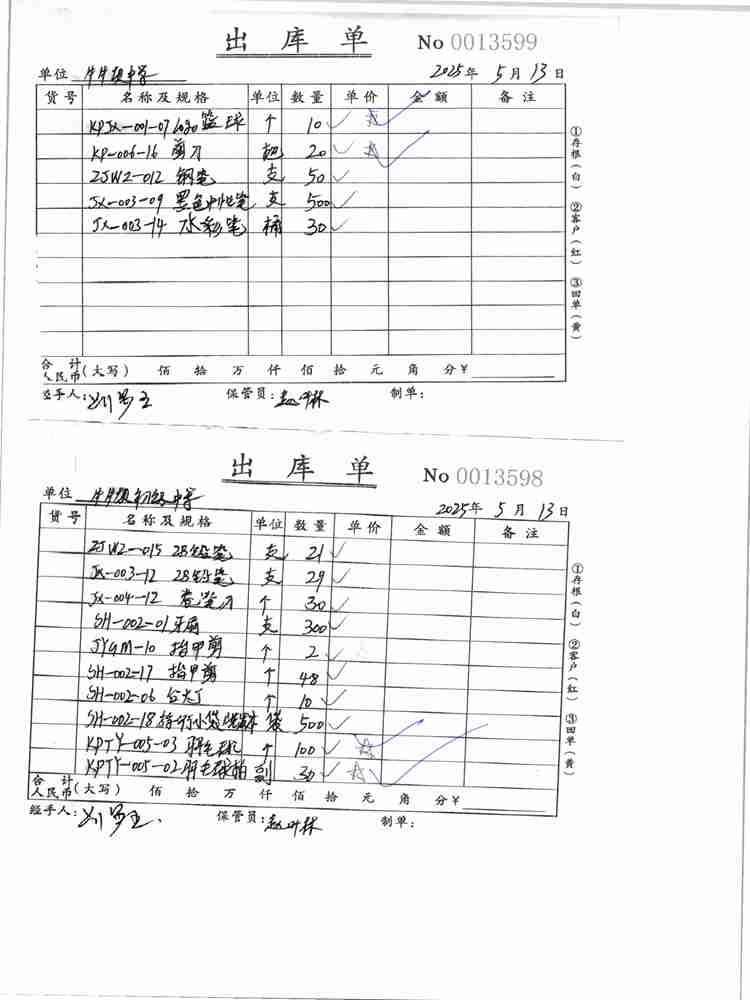 出 库 单 No 0013599
单位 中学 2025年 5月 13日
货号 名称及规格 单位 数量 单价 金额 备注
KPJX-001-07 篮球 个 10
KP-006-16 剪刀 把 20
ZJWZ-012 钢笔 支 50
JX-003-09 黑色中性笔 支 500
JX-003-14 水彩笔 桶 30
合计人民币(大写) 佰 拾 万 仟 佰 拾 元 角 分¥
经手人: 保管员: 制单:
①存根(白) ②客户(红) ③回单(黄)
出 库 单 No 0013598
单位 初级中学 2025年 5月 13日
货号 名称及规格 单位 数量 单价 金额 备注
ZJWZ-015 2B铅笔 支 21
JX-003-12 2B铅笔 支 29
JX-004-12 卷笔刀 个 30
SH-002-01 牙刷 支 300
JYGM-10 指甲剪 个 2
SH-002-17 指甲剪 个 48
SH-002-06 个 10
SH-002-18 袋 500
KPTY-005-03 羽毛球 个 100
KPTY-005-02 羽毛球拍 副 30
合计人民币(大写) 佰 拾 万 仟 佰 拾 元 角 分¥
经手人: 保管员: 制单:
①存根(白) ②客户(红) ③回单(黄)